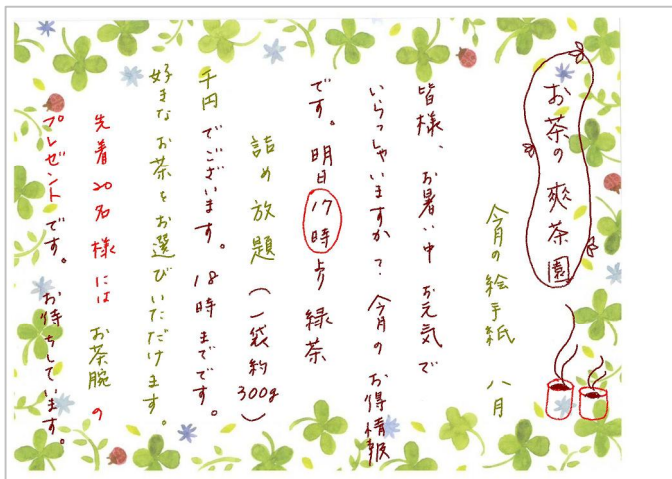 お茶の爽茶園
今月の絵手紙 八月
皆様、お暑い中お元気で
いらっしゃいますか？今月のお得情報
です。明日17時より緑茶
詰め放題（一袋約300g）
千円でございます。18時までです。
好きなお茶をお選びいただけます。
先着20名様にはお茶腕の
プレゼントです。お待ちしています。